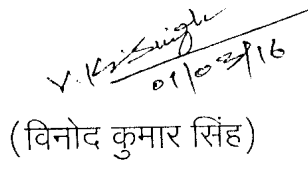 V. Kr. Singh
01/03/16
(विनोद कुमार सिंह)